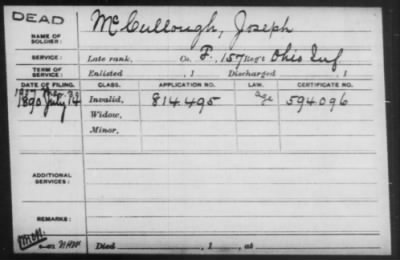 DEAD
NAME OF SOLDIER: McCullough, Joseph
SERVICE: Late rank, Co. F., 157 Reg't Ohio Inf
TERM OF SERVICE: Enlisted , 1 Discharged , 1
DATE OF FILING. CLASS. APPLICATION NO. LAW. CERTIFICATE NO.
1890 July 14 Invalid, 814.495 594.096
Widow,
Minor,
ADDITIONAL SERVICES:
REMARKS:
Died , 1 , at